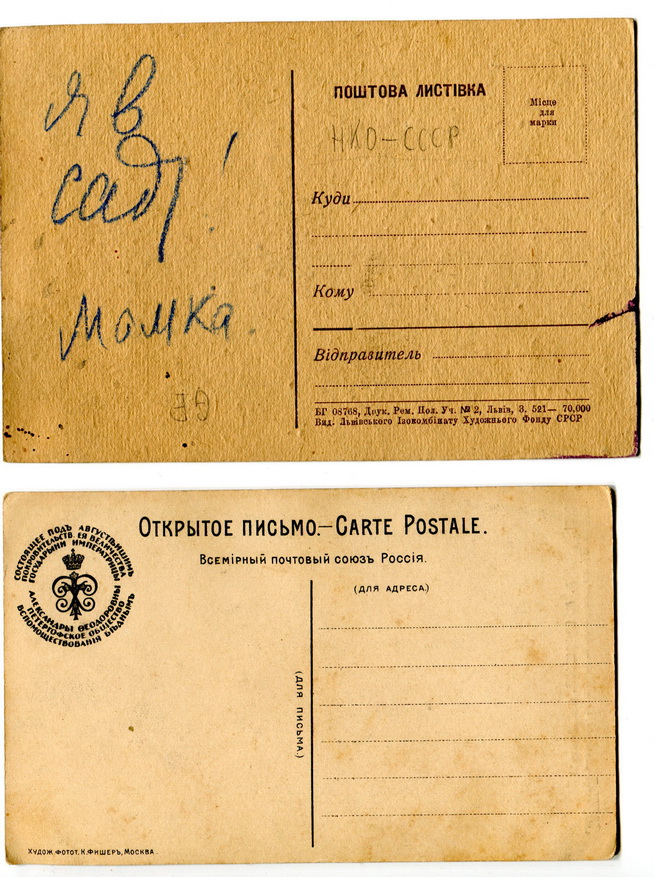 я в
саду!
Момка.
ПОШТОВА ЛИСТІВКА
Місце
для
марки
НКО–СССР
Куди
Кому
Відправитель
БГ 08768, Друк. Рем. Пол. Уч. № 2, Львів, З. 521— 70,000
Вид. Львівського Ізокомбінату Художнього Фонду СРСР
ОТКРЫТОЕ ПИСЬМО.–CARTE POSTALE.
Всемірный почтовый союзъ Россія.
СОСТОЯЩЕЕ ПОДЪ АВГУСТѢЙШИМЪ
ПОКРОВИТЕЛЬСТВ. ЕЯ ВЕЛИЧЕСТВА
ГОСУДАРЫНИ ИМПЕРАТРИЦЫ
АЛЕКСАНДРЫ ѲЕОДОРОВНЫ
ПЕТЕРГОФСКОЕ ОБЩЕСТВО
ВСПОМОЩЕСТВОВАНІЯ БѢДНЫМЪ
(ДЛЯ АДРЕСА.)
(ДЛЯ ПИСЬМА.)
ХУДОЖ. ФОТОТ. К. ФИШЕРЪ, МОСКВА.